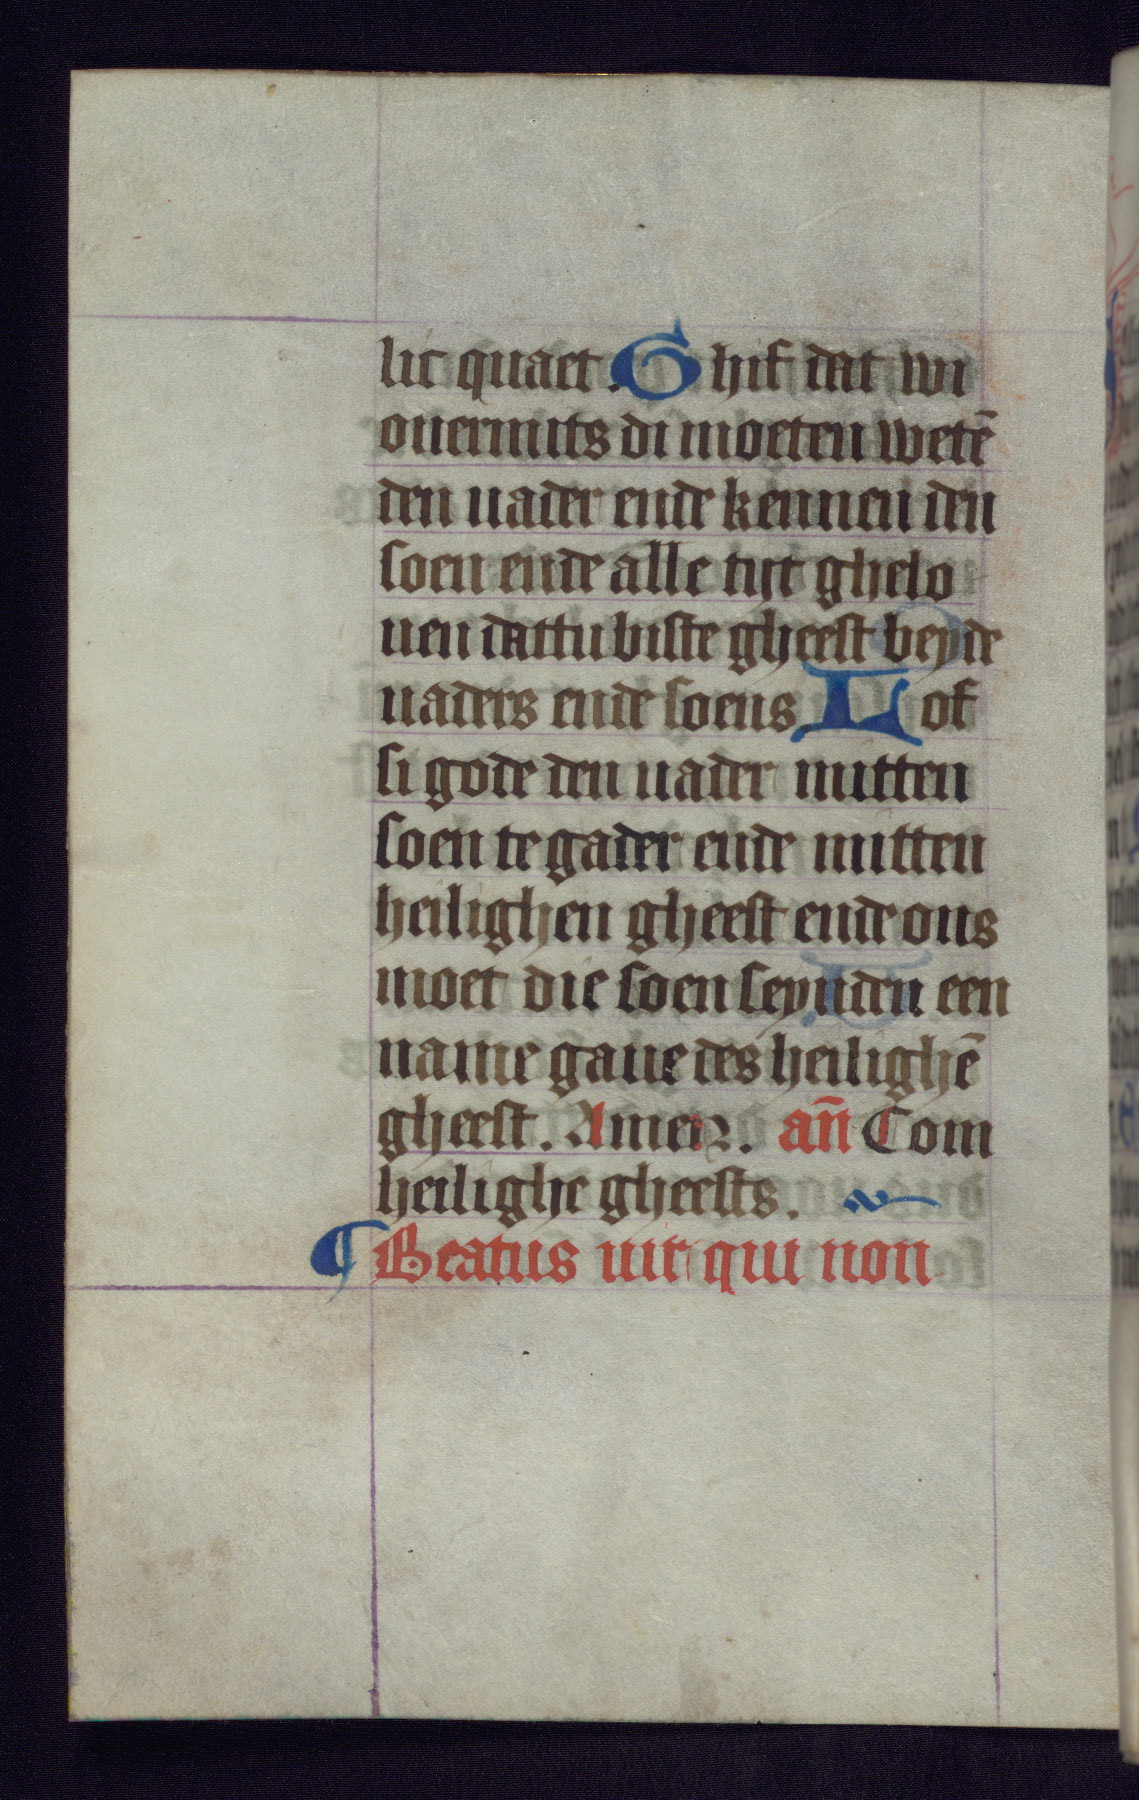 lic quaet. Ghif dat wi
ouermits di moeten wetē
den uader ende kennen den
soen ende alle tijt ghelo
uen dattu biste gheest beyde
uaders ende soens Lof
si gode den uader mitten
soen te gader ende mitten
heilighen gheest ende ons
moet die soen seynden een
name gaue des heilighē
gheest. Amen. an̄ Com
heilighe gheests.
¶ Beatus uir qui non